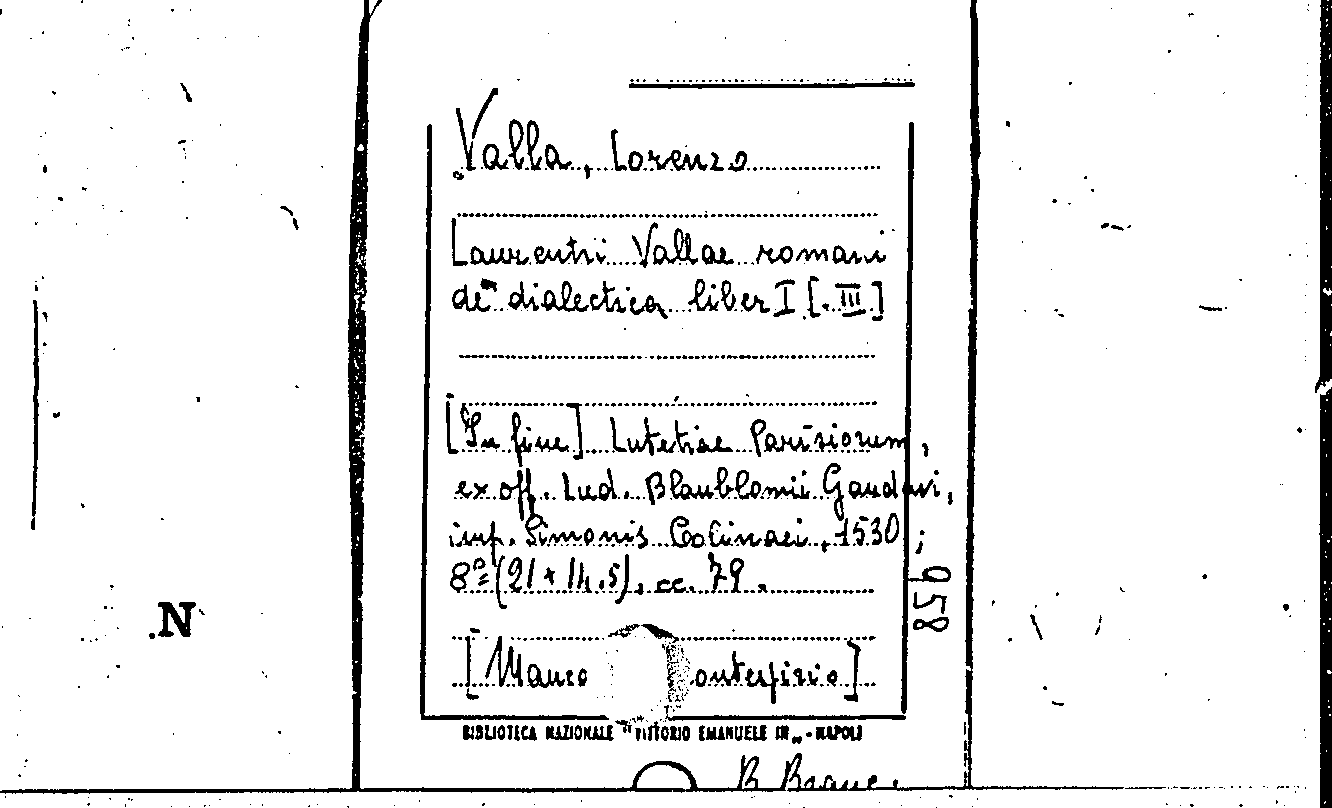 Valla, Lorenzo
Laurentii Vallae romani
de dialectica liber I [.III]
[In fine] Lutetiae Parisiorum,
ex off. Lud. Blaublomii Gandavi,
imp. Simonis Colinaei, 1530;
8º (21 + 14.5), cc. 79.
958
N
[Manco
BIBLIOTECA NAZIONALE "VITTORIO EMANUELE III" - NAPOLI
B. Branc.